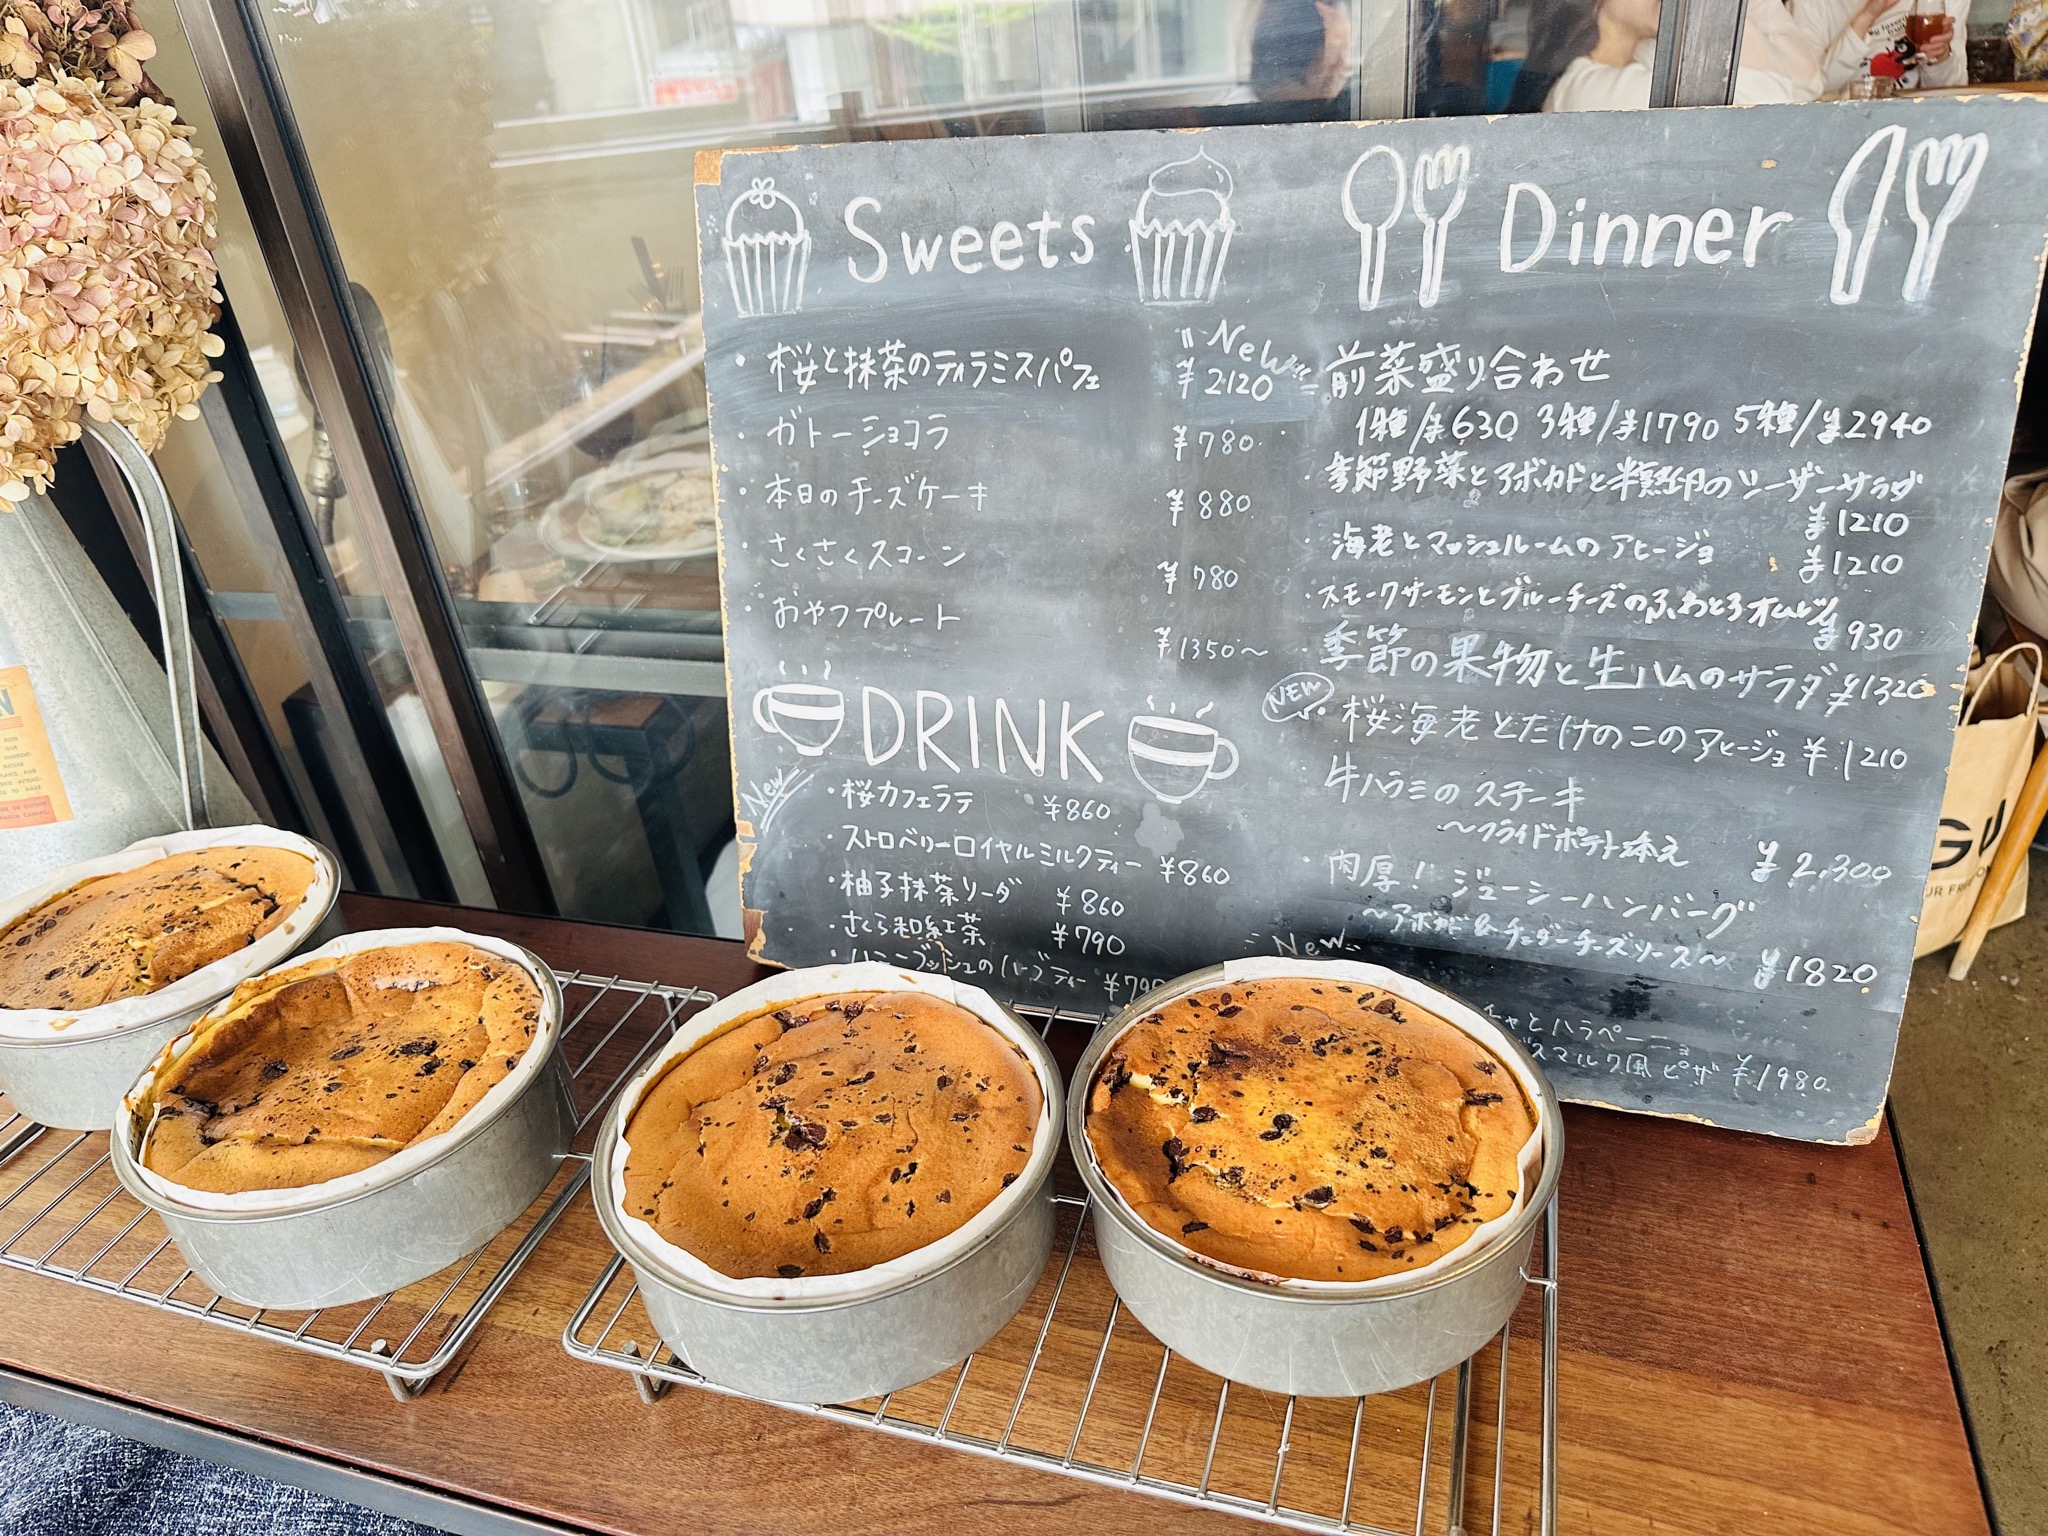 Sweets
・桜と抹茶のティラミスパフェ
New
¥2120
・ガトーショコラ ¥780
・本日のチーズケーキ ¥880
・さくさくスコーン ¥780
・おやつプレート ¥1350〜
DRINK
New
・桜カフェラテ ¥860
・ストロベリーロイヤルミルクティー ¥860
・柚子抹茶ソーダ ¥860
・さくら和紅茶 ¥790
・ハニーブッシュのハーブティー ¥790
Dinner
前菜盛り合わせ
1種/¥630 3種/¥1790 5種/¥2940
・季節野菜とアボカドと半熟卵のシーザーサラダ
¥1210
・海老とマッシュルームのアヒージョ ¥1210
・スモークサーモンとブルーチーズのふわとろオムレツ
¥930
・季節の果物と生ハムのサラダ ¥1320
NEW
・桜海老とたけのこのアヒージョ ¥1210
牛ハラミのステーキ
〜フライドポテト添え
¥2,300
・肉厚!ジューシーハンバーグ
〜アボカド&チェダーチーズソース〜 ¥1820
New
ャとハラペーニョ
スマルク風ピザ ¥1980
GU